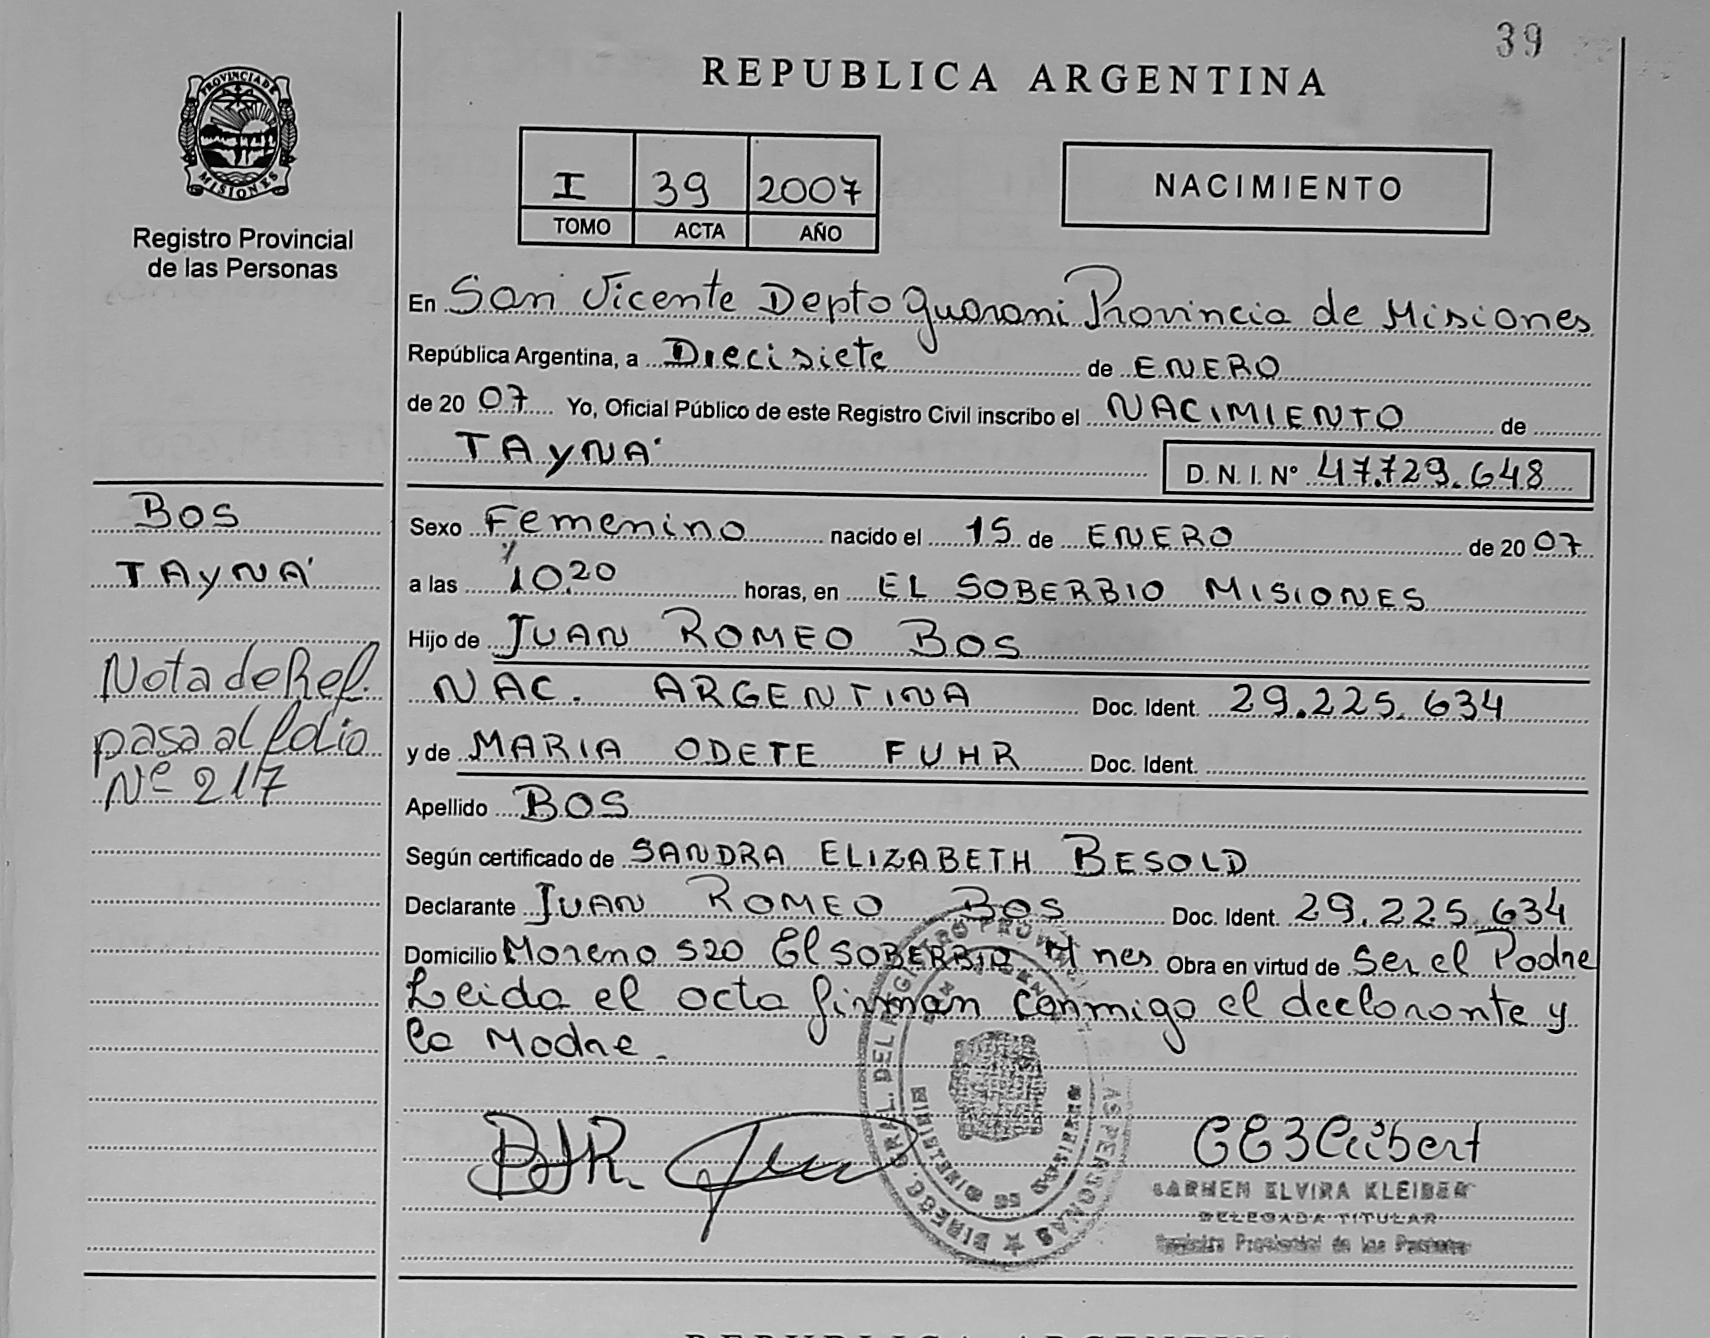 39
REPUBLICA ARGENTINA
PROVINCIA DE
MISIONES
Registro Provincial
de las Personas
I 39 2007
TOMO ACTA AÑO
NACIMIENTO
En San Vicente Depto Guarani Provincia de Misiones
República Argentina, a Diecisiete de ENERO
de 2007 Yo, Oficial Público de este Registro Civil inscribo el NACIMIENTO de
TAyNA'
D. N. I. Nº 47.729.648
BOS
TAyNA'
Nota de Ref.
pasa al folio
Nº 217
Sexo Femenino nacido el 15 de ENERO de 2007
a las 10.20 horas, en EL SOBERBIO MISIONES
Hijo de JUAN ROMEO BOS
NAC. ARGENTINA Doc. Ident. 29.225.634
y de MARIA ODETE FUHR Doc. Ident.
Apellido BOS
Según certificado de SANDRA ELIZABETH BESOLD
Declarante JUAN ROMEO BOS Doc. Ident. 29.225.634
Domicilio Moreno 520 El SOBERBIO Mnes Obra en virtud de Ser el Padre
Leida el acta firman conmigo el declarante y
la Madre.
BJR
DIRECC. GRAL. DEL REGISTRO PROV. LAS PERSONAS
MINISTERIO DE GOBIERNO
CARMEN ELVIRA KLEIBER
DELEGADA TITULAR
Registro Provincial de las Personas
REPUBLICA ARGENTINA